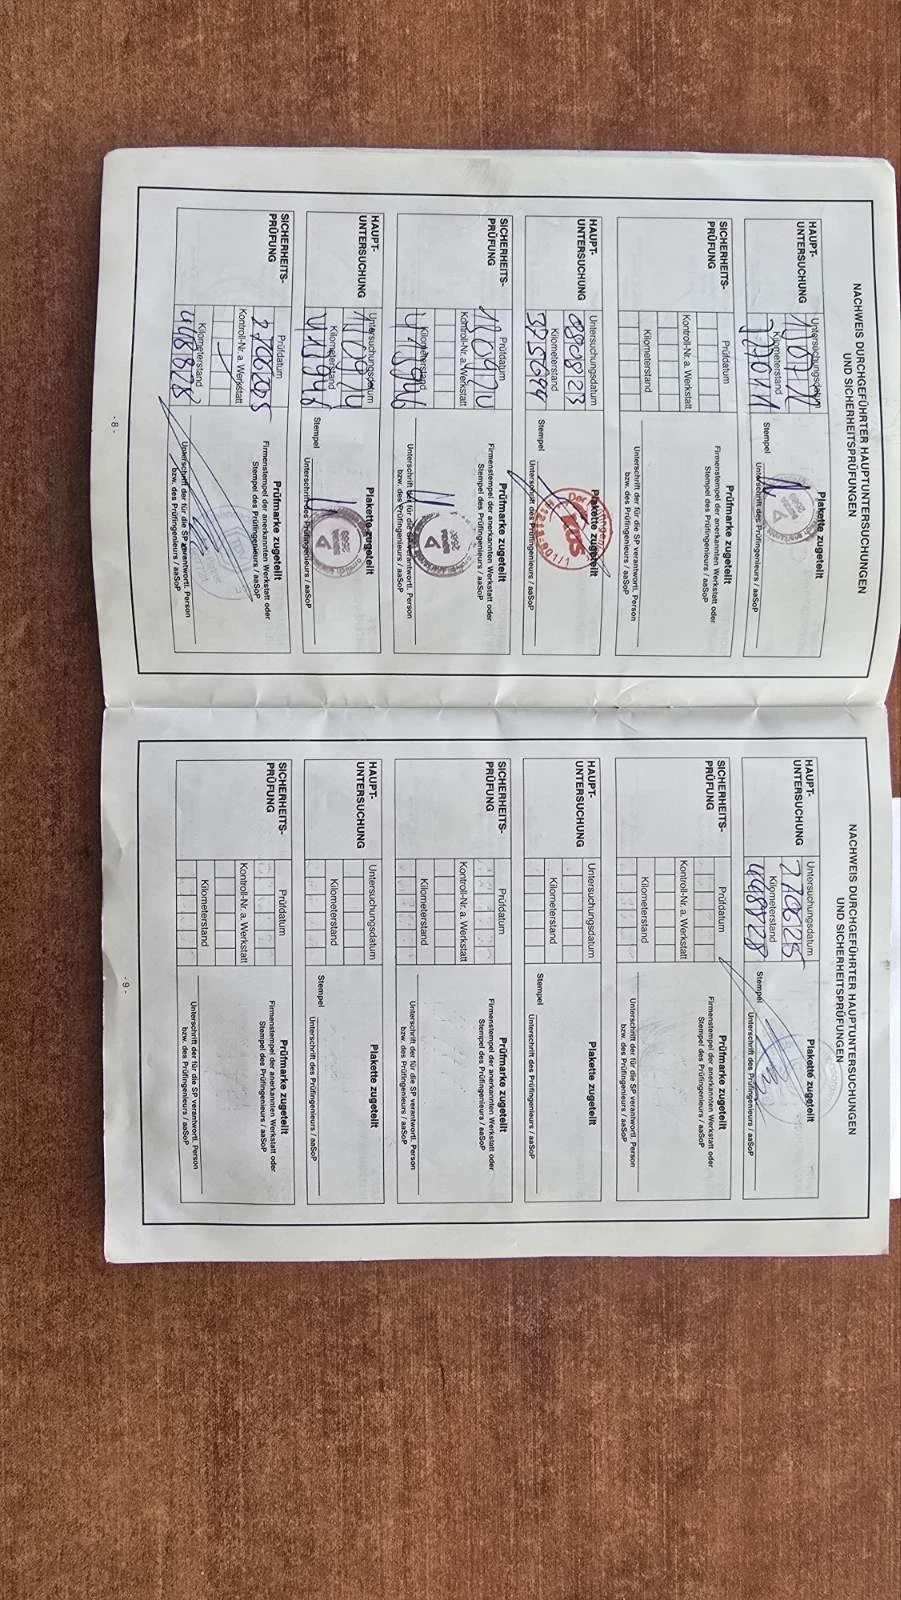 NACHWEIS DURCHGEFÜHRTER HAUPTUNTERSUCHUNGEN
UND SICHERHEITSPRÜFUNGEN
HAUPT-
UNTERSUCHUNG
Untersuchungsdatum
Kilometerstand
Plakette zugeteilt
Stempel
Unterschrift des Prüfingenieurs / aaSoP
SICHERHEITS-
PRÜFUNG
Prüfdatum
Kontroll-Nr. a. Werkstatt
Kilometerstand
Prüfmarke zugeteilt
Firmenstempel der anerkannten Werkstatt oder
Stempel des Prüfingenieurs / aaSoP
Unterschrift der für die SP verantwortl. Person
bzw. des Prüfingenieurs / aaSoP
HAUPT-
UNTERSUCHUNG
Untersuchungsdatum
080823
Kilometerstand
375699
Plakette zugeteilt
Stempel
Unterschrift des Prüfingenieurs / aaSoP
SICHERHEITS-
PRÜFUNG
Prüfdatum
Kontroll-Nr. a. Werkstatt
Kilometerstand
Prüfmarke zugeteilt
Firmenstempel der anerkannten Werkstatt oder
Stempel des Prüfingenieurs / aaSoP
Unterschrift der für die SP verantwortl. Person
bzw. des Prüfingenieurs / aaSoP
HAUPT-
UNTERSUCHUNG
Untersuchungsdatum
Kilometerstand
Plakette zugeteilt
Stempel
Unterschrift des Prüfingenieurs / aaSoP
SICHERHEITS-
PRÜFUNG
Prüfdatum
Kontroll-Nr. a. Werkstatt
Kilometerstand
448828
Prüfmarke zugeteilt
Firmenstempel der anerkannten Werkstatt oder
Stempel des Prüfingenieurs / aaSoP
Unterschrift der für die SP verantwortl. Person
bzw. des Prüfingenieurs / aaSoP
- 8 -
NACHWEIS DURCHGEFÜHRTER HAUPTUNTERSUCHUNGEN
UND SICHERHEITSPRÜFUNGEN
HAUPT-
UNTERSUCHUNG
Untersuchungsdatum
Kilometerstand
448828
Plakette zugeteilt
Stempel
Unterschrift des Prüfingenieurs / aaSoP
SICHERHEITS-
PRÜFUNG
Prüfdatum
Kontroll-Nr. a. Werkstatt
Kilometerstand
Prüfmarke zugeteilt
Firmenstempel der anerkannten Werkstatt oder
Stempel des Prüfingenieurs / aaSoP
Unterschrift der für die SP verantwortl. Person
bzw. des Prüfingenieurs / aaSoP
HAUPT-
UNTERSUCHUNG
Untersuchungsdatum
Kilometerstand
Plakette zugeteilt
Stempel
Unterschrift des Prüfingenieurs / aaSoP
SICHERHEITS-
PRÜFUNG
Prüfdatum
Kontroll-Nr. a. Werkstatt
Kilometerstand
Prüfmarke zugeteilt
Firmenstempel der anerkannten Werkstatt oder
Stempel des Prüfingenieurs / aaSoP
Unterschrift der für die SP verantwortl. Person
bzw. des Prüfingenieurs / aaSoP
HAUPT-
UNTERSUCHUNG
Untersuchungsdatum
Kilometerstand
Plakette zugeteilt
Stempel
Unterschrift des Prüfingenieurs / aaSoP
SICHERHEITS-
PRÜFUNG
Prüfdatum
Kontroll-Nr. a. Werkstatt
Kilometerstand
Prüfmarke zugeteilt
Firmenstempel der anerkannten Werkstatt oder
Stempel des Prüfingenieurs / aaSoP
Unterschrift der für die SP verantwortl. Person
bzw. des Prüfingenieurs / aaSoP
- 9 -